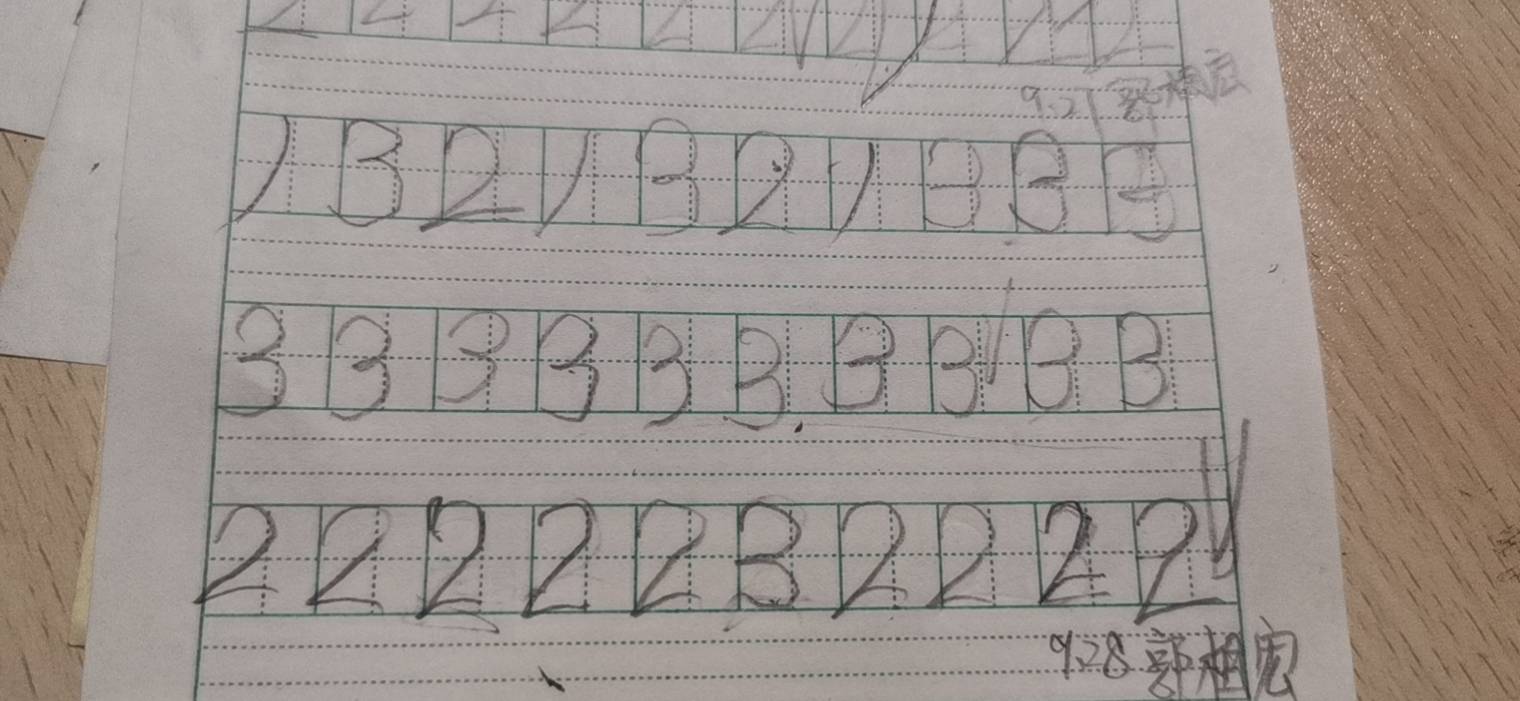 2 2 2 2 2 2 2 2 2 2
9.27
1 3 2 1 3 2 1 3 3 3
3 3 3 3 3 3 3 3 3 3
2 2 2 2 2 3 2 2 2 2
9.28 郭柤宏